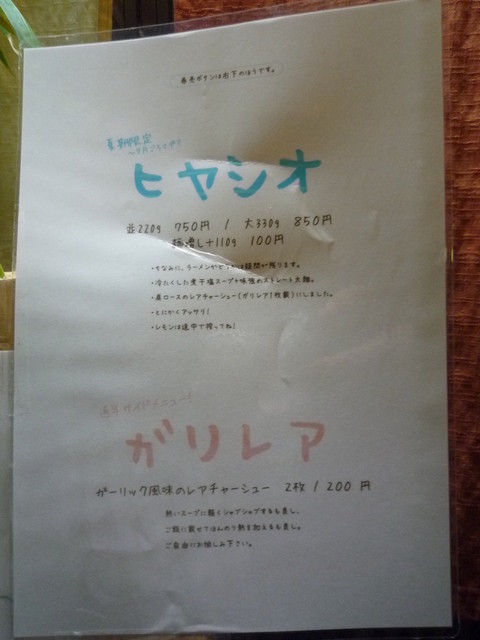 券売ボタンは右下のほうです。
夏期限定
ヒヤシオ
並220g 750円 / 大330g 850円
麺増し+110g 100円
・ちなみに、ラーメン
・冷たくした煮干塩スープ+味強めストレート太麺。
・肩ロースのレアチャーシュー(ガリレア1枚載)にしました。
・とにかくアッサリ!
・レモンは途中で搾ってね!
通年サイドメニュー!
ガリレア
ガーリック風味のレアチャーシュー 2枚 / 200円
熱いスープに軽くシャブシャブするも良し、
ご飯に載せてほんのり熱を加えるも良し。
ご自由にお愉しみ下さい。